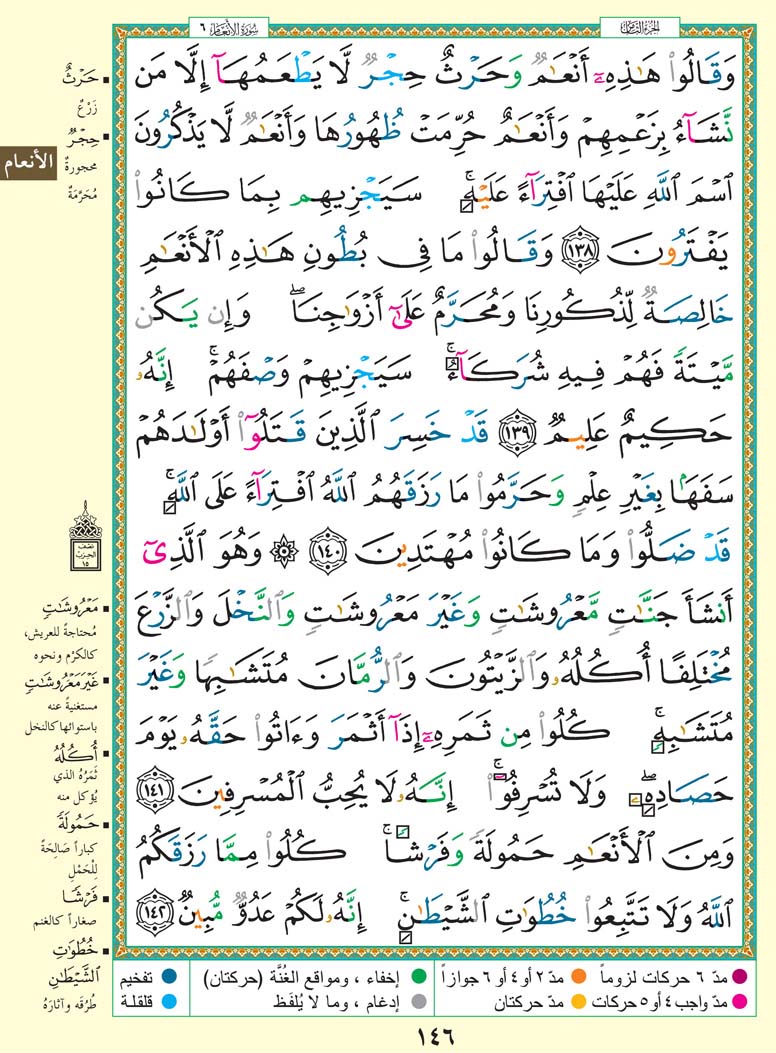 الجزء الثامن
سورة الأنعام ٦
وَقَالُوا۟ هَـٰذِهِۦٓ أَنْعَـٰمٌ وَحَرْثٌ حِجْرٌ لَّا يَطْعَمُهَآ إِلَّا مَن
نَّشَآءُ بِزَعْمِهِمْ وَأَنْعَـٰمٌ حُرِّمَتْ ظُهُورُهَا وَأَنْعَـٰمٌ لَّا يَذْكُرُونَ
ٱسْمَ ٱللَّهِ عَلَيْهَا ٱفْتِرَآءً عَلَيْهِ ۚ سَيَجْزِيهِم بِمَا كَانُوا۟
يَفْتَرُونَ ١٣٨ وَقَالُوا۟ مَا فِى بُطُونِ هَـٰذِهِ ٱلْأَنْعَـٰمِ
خَالِصَةٌ لِّذُكُورِنَا وَمُحَرَّمٌ عَلَىٰٓ أَزْوَٰجِنَا ۖ وَإِن يَكُن
مَّيْتَةً فَهُمْ فِيهِ شُرَكَآءُ ۚ سَيَجْزِيهِمْ وَصْفَهُمْ ۚ إِنَّهُۥ
حَكِيمٌ عَلِيمٌ ١٣٩ قَدْ خَسِرَ ٱلَّذِينَ قَتَلُوٓا۟ أَوْلَـٰدَهُمْ
سَفَهًۢا بِغَيْرِ عِلْمٍ وَحَرَّمُوا۟ مَا رَزَقَهُمُ ٱللَّهُ ٱفْتِرَآءً عَلَى ٱللَّهِ ۚ
قَدْ ضَلُّوا۟ وَمَا كَانُوا۟ مُهْتَدِينَ ١٤٠ ۞ وَهُوَ ٱلَّذِىٓ
أَنشَأَ جَنَّـٰتٍ مَّعْرُوشَـٰتٍ وَغَيْرَ مَعْرُوشَـٰتٍ وَٱلنَّخْلَ وَٱلزَّرْعَ
مُخْتَلِفًا أُكُلُهُۥ وَٱلزَّيْتُونَ وَٱلرُّمَّانَ مُتَشَـٰبِهًا وَغَيْرَ
مُتَشَـٰبِهٍ ۚ كُلُوا۟ مِن ثَمَرِهِۦٓ إِذَآ أَثْمَرَ وَءَاتُوا۟ حَقَّهُۥ يَوْمَ
حَصَادِهِۦ ۖ وَلَا تُسْرِفُوٓا۟ ۚ إِنَّهُۥ لَا يُحِبُّ ٱلْمُسْرِفِينَ ١٤١
وَمِنَ ٱلْأَنْعَـٰمِ حَمُولَةً وَفَرْشًا ۚ كُلُوا۟ مِمَّا رَزَقَكُمُ
ٱللَّهُ وَلَا تَتَّبِعُوا۟ خُطُوَٰتِ ٱلشَّيْطَـٰنِ ۚ إِنَّهُۥ لَكُمْ عَدُوٌّ مُّبِينٌ ١٤٢
حَرْثٌ
زَرْعٌ
حِجْرٌ
محجورةٌ
مُحَرَّمَةٌ
الأنعام
نصف
الحزب
١٥
مَعْرُوشَـٰتٍ
مُحتاجةً للعريش،
كالكَرْم ونحوه
غَيْرَ مَعْرُوشَـٰتٍ
مستغنيةً عنه
باستوائها كالنخل
أُكُلُهُۥ
ثَمَرُهُ الذي
يُؤكل منه
حَمُولَةً
كباراً صَالحَةً
لِلْحَمْلِ
فَرْشًا
صغاراً كالغنم
خُطُوَٰتِ
ٱلشَّيْطَـٰنِ
طُرُقَه وآثارَهُ
مدّ ٦ حركات لزوماً
مدّ ٢ أو ٤ أو ٦ جوازاً
إخفاء ، ومواقع الغُنَّة (حركتان)
تفخيم
مدّ واجب ٤ أو ٥ حركات
مدّ حركتان
إدغام ، وما لا يُلفَظ
قلقلة
١٤٦